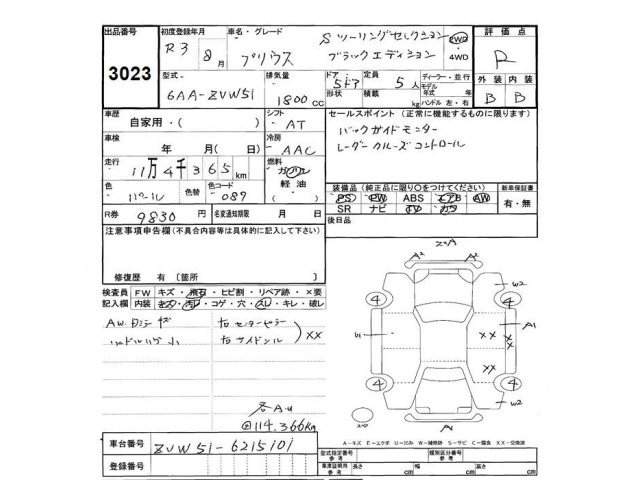 出品番号
3023
初度登録年月
R3 8月
車名・グレード
プリウス
Sツーリングセレクション
ブラックエディション
2WD
・4WD
評価点
R
外装 内装
B B
型式
6AA-ZVW51
排気量
1800cc
ドア 5ドア
形状
定員 5人
積載 kg
ディーラー・並行
モデル
年式 年
ハンドル 左・右
車歴
自家用・( )
シフト
AT
車検
年 月(日)
冷房
AAC
走行
11万4千365km
燃料
ガソリン
軽油・
( )
色
パール
色替
色コード
089
R券 9830円
名変通知期限 月 日
セールスポイント (正常に機能するものに限ります)
バックガイドモニター
レーダークルーズコントロール
装備品 (純正品に限り○をつけてください)
PS PW ABS エアB AW
SR ナビ TV カワ
新車保証書
有・無
後日品
注意事項申告欄(不具合内容等は具体的に記入して下さい)
修復歴 有 [箇所 ]
検査員
記入欄
FW キズ・飛石・ヒビ割・リペア跡・×要
内装 キズ・汚れ・コゲ・穴・スレ・キレ・破レ
AW.
ハンドル
右センターピラー
右サイドシル
××
各A.U
114,366km
A² A²
A
W2
A1
××
××
U1
W2
A
4 4 4 4
A-キズ E-エクボ U-凹み W-補修跡 S-サビ C-腐食 XX-交換済
車台番号
ZVW51-6215101
登録番号
型式指定番号
参考
類別区分番号
参考
車庫証明用
参考
長さ cm
幅 cm
高さ cm